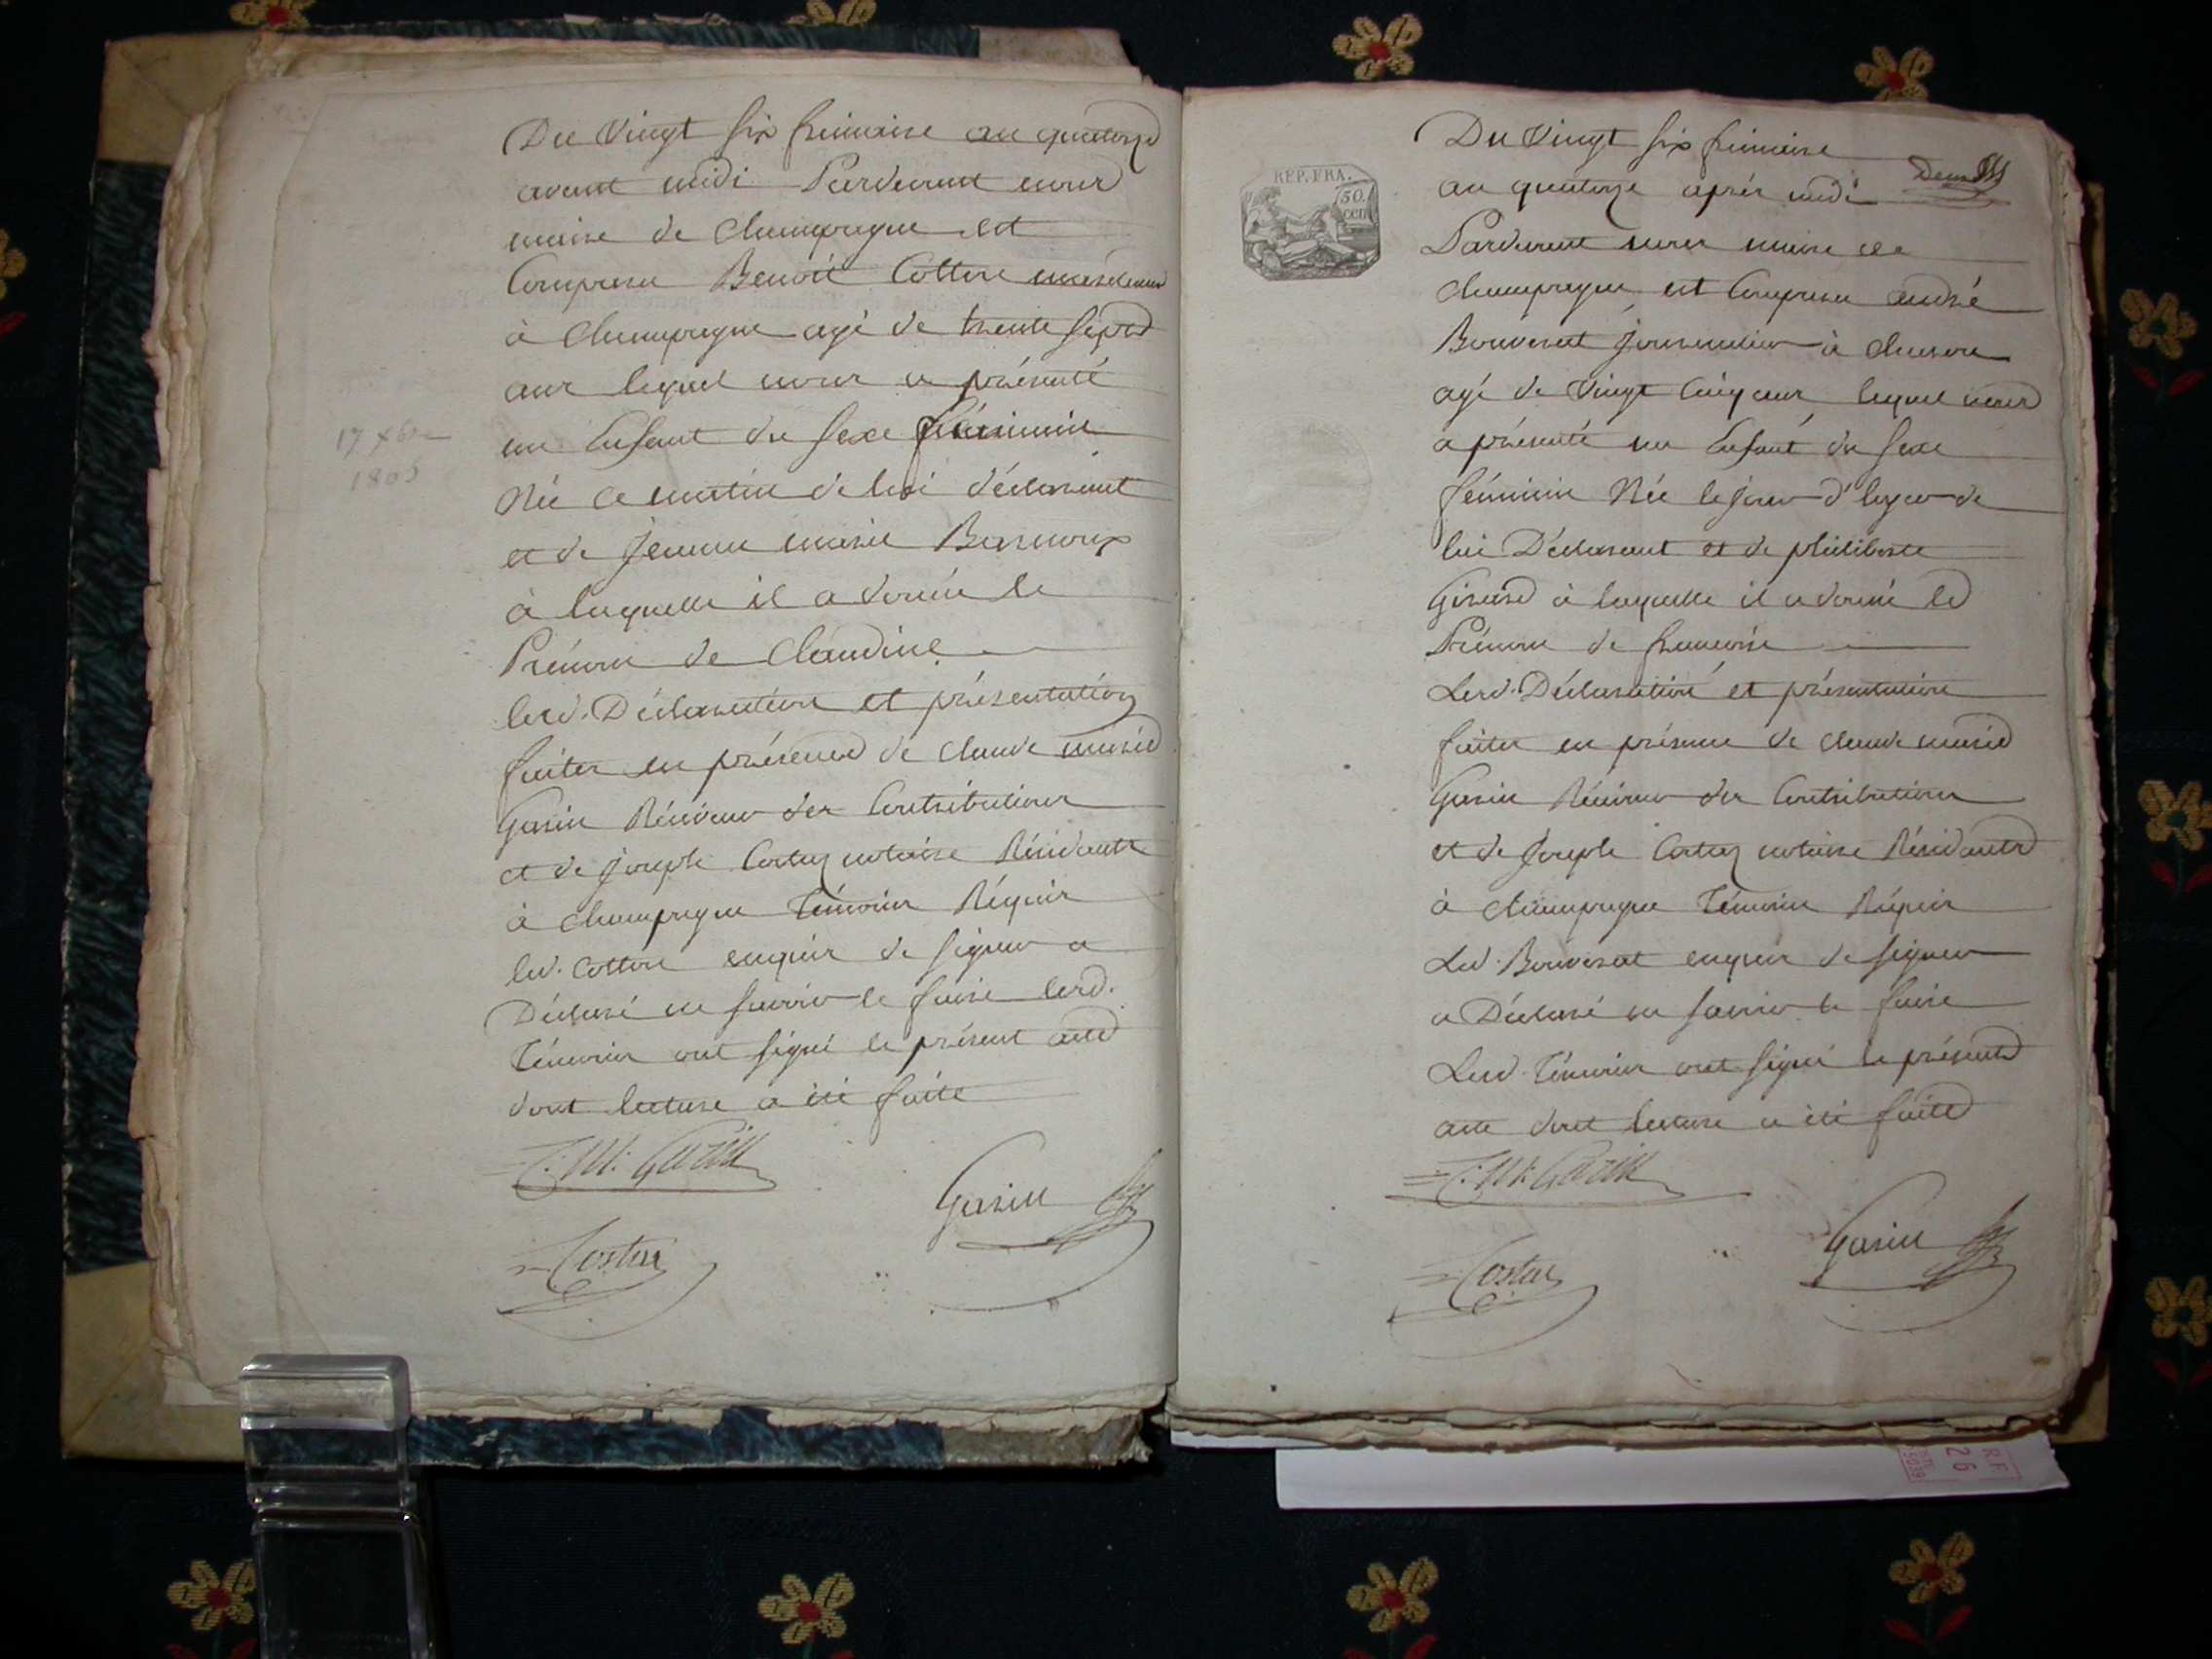 Du Vingt six frimaire an quatorze
avant midi Pardevant nous
maire de Champagne est
Comparu Benoit Cottin
à Champagne agé de trente sept
ans lequel nous a présenté
un Enfant du sexe féminin
Née ce matin de lui déclarant
et de jeanne marie
à laquelle il a donné le
Prénom de Claudine
lesd. Déclaration et présentation
faites en présence de claude marie
Garin Réceveur des Contributions
et de joseph Costaz notaire Résidants
à Champagne Témoins Réquis
led. Cottin enquis de signer a
Déclaré ne savoir le faire lesd.
Témoins ont signé le présent acte
dont lecture a été faite
C. M. Garin
Garin
Costaz
17 xbre
1805
REP. FRA.
50.
cen
Du Vingt six frimaire
an quatorze aprés midi
Pardevant nous maire de
champagne est Comparu andré
Bouverat journalier à
agé de Vingt Cinq ans lequel nous
a présenté un Enfant du sexe
féminin Née le jour d'hyer de
lui Déclarant et de philiberte
Girard à laquelle il a donné le
Prénom de francoise
Lesd. Déclaration et présentation
faites en présence de claude marie
Garin Réceveur des Contributions
et de Joseph Costaz notaire Résidants
à Champagne Témoins Réquis
Led. Bouverat enquis de signer
a Déclaré ne savoir le faire
Lesd. Témoins ont signé le présent
acte dont lecture a été faite
C. M. Garin
Garin
Costaz
R.F
26